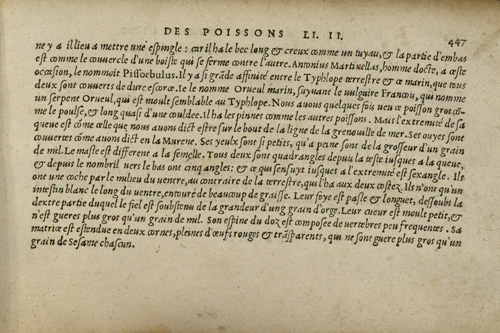 DES POISSONS LI. II. 447
ne y a il lieu a mettre une espingle : car il ha le bec long & creux comme un tuyau, & la partie d'embas
est comme le couvercle d'une boiste qui se ferme contre l'autre. Antonius Martinellas, homme docte, a ceste
occasion, le nommoit Pissorbulus. Il y a si grãde affinité entre le Typhlope terrestre & ce marin, que tous
deux sont couverts de dure escorce. Ie le nomme Orueul marin, suyvant le vulgaire Francoys, qui nomme
un serpent Orueul, qui est moult semblable au Typhlope. Nous avons quelques fois veu ce poisson gros cõ-
me le poulse, & long quasi d'une couldee. Il ha les pinnes comme les autres poissons. Mais l'extremité de sa
queue est cõme celle que nous avons dict estre sur le bout de la ligne de la grenouille de mer. Ses ouyes sont
couvertes cõme avons dict en la Murene. Ses yeulx sont si petits, qu'a peine sont de la grosseur d'un grain
de mil. Le masle est different a la femelle. Tous deux sont quadrangles depuis la teste iusques a la queue,
& depuis le nombril vers le bas ont cinq angles : & ce que s'ensuyt iusques a l'extremité est sexangle. Ils
ont une coche par le milieu du ventre, au contraire de la terrestre, qui l'ha aux deux costez. Ils n'ont qu'un
intestin blanc le long du ventre, entouré de beaucoup de graisse. Leur foye est pasle & longuet, dessoubs la
dextre partie duquel le fiel est soubstenu de la grandeur d'ung grain d'orge. Leur cueur est moult petit, &
n'est gueres plus gros qu'un grain de mil. Son espine du doz est composee de vertebres peu frequentes. Sa
matrice est estendue en deux cornes, pleines d'œufs rouges & trãsparents, qui ne sont guere plus gros qu'un
grain de Sesame chascun.